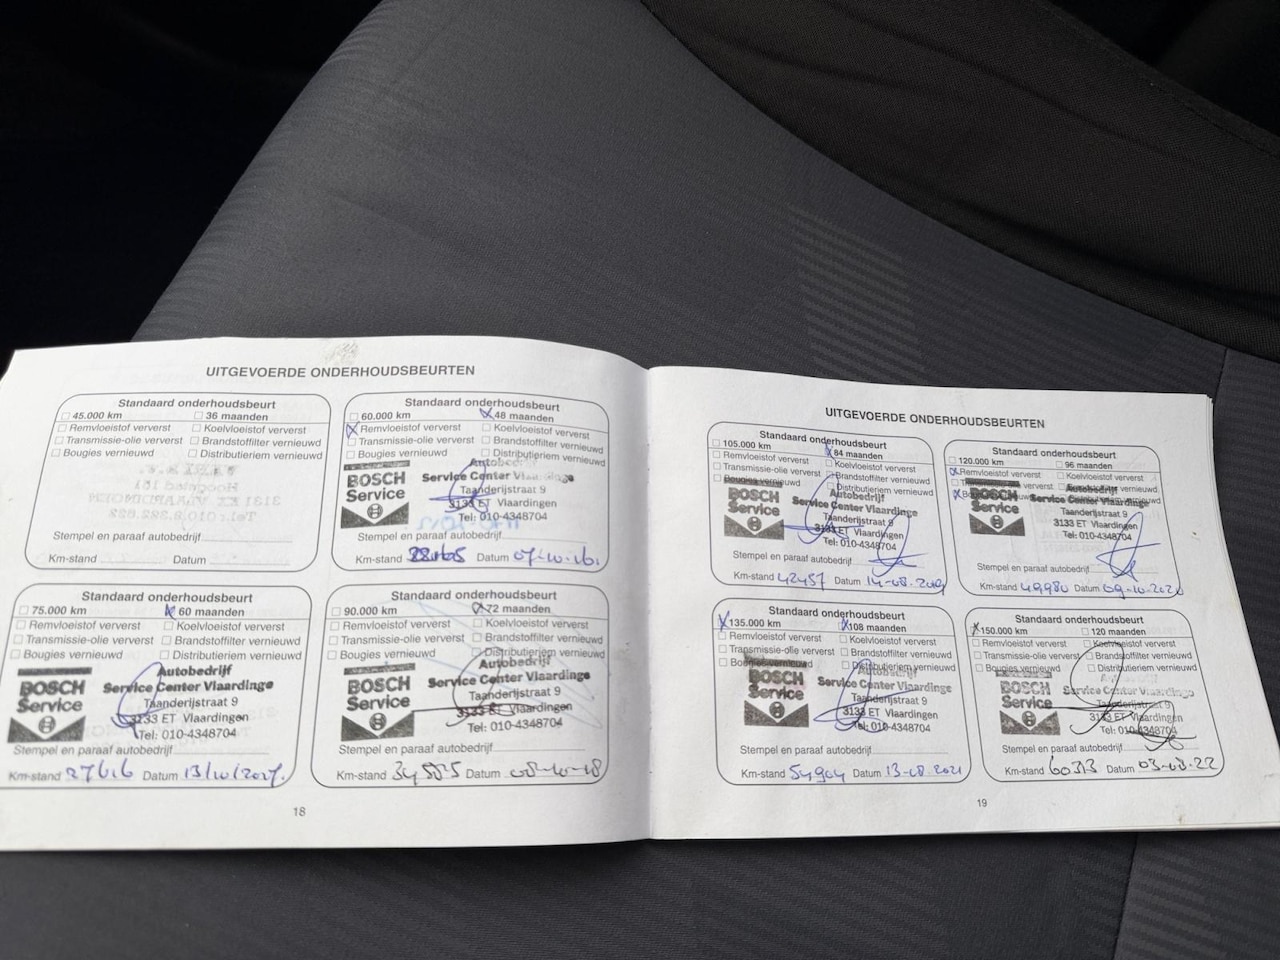 UITGEVOERDE ONDERHOUDSBEURTEN
Standaard onderhoudsbeurt
45.000 km 36 maanden
Remvloeistof ververst Koelvloeistof ververst
Transmissie-olie ververst Brandstoffilter vernieuwd
Bougies vernieuwd Distributieriem vernieuwd
Stempel en paraaf autobedrijf
Km-stand Datum
Standaard onderhoudsbeurt
60.000 km 48 maanden
Remvloeistof ververst Koelvloeistof ververst
Transmissie-olie ververst Brandstoffilter vernieuwd
Bougies vernieuwd Distributieriem vernieuwd
Autobedrijf
BOSCH Service Center Vlaardinge
Service Taanderijstraat 9
3133 ET Vlaardingen
Tel: 010-4348704
Stempel en paraaf autobedrijf
Km-stand Datum 07-10-16.
Standaard onderhoudsbeurt
75.000 km 60 maanden
Remvloeistof ververst Koelvloeistof ververst
Transmissie-olie ververst Brandstoffilter vernieuwd
Bougies vernieuwd Distributieriem vernieuwd
Autobedrijf
BOSCH Service Center Vlaardinge
Service Taanderijstraat 9
3133 ET Vlaardingen
Tel: 010-4348704
Stempel en paraaf autobedrijf
Km-stand 27616 Datum
Standaard onderhoudsbeurt
90.000 km 72 maanden
Remvloeistof ververst Koelvloeistof ververst
Transmissie-olie ververst Brandstoffilter vernieuwd
Bougies vernieuwd Distributieriem vernieuwd
Autobedrijf
BOSCH Service Center Vlaardinge
Service Taanderijstraat 9
3133 ET Vlaardingen
Tel: 010-4348704
Stempel en paraaf autobedrijf
Km-stand Datum 08-10-18
18
UITGEVOERDE ONDERHOUDSBEURTEN
Standaard onderhoudsbeurt
105.000 km 84 maanden
Remvloeistof ververst Koelvloeistof ververst
Transmissie-olie ververst Brandstoffilter vernieuwd
Bougies vernieuwd Distributieriem vernieuwd
Autobedrijf
BOSCH Service Center Vlaardinge
Service Taanderijstraat 9
3133 ET Vlaardingen
Tel: 010-4348704
Stempel en paraaf autobedrijf
Km-stand 42457 Datum 14-08-2019
Standaard onderhoudsbeurt
120.000 km 96 maanden
Remvloeistof ververst Koelvloeistof ververst
Autobedrijf
BOSCH Service Center Vlaardinge
Service Taanderijstraat 9
3133 ET Vlaardingen
Tel: 010-4348704
Stempel en paraaf autobedrijf
Km-stand 49980 Datum 09-10-2020
Standaard onderhoudsbeurt
135.000 km 108 maanden
Remvloeistof ververst Koelvloeistof ververst
Transmissie-olie ververst Brandstoffilter vernieuwd
Bougies vernieuwd Distributieriem vernieuwd
Autobedrijf
BOSCH Service Center Vlaardinge
Service Taanderijstraat 9
3133 ET Vlaardingen
Tel: 010-4348704
Stempel en paraaf autobedrijf
Km-stand 54904 Datum 13-08-2021
Standaard onderhoudsbeurt
150.000 km 120 maanden
Remvloeistof ververst Koelvloeistof ververst
Transmissie-olie ververst Brandstoffilter vernieuwd
Bougies vernieuwd Distributieriem vernieuwd
BOSCH Service Center Vlaardinge
Service Taanderijstraat 9
3133 ET Vlaardingen
Tel: 010-4348704
Stempel en paraaf autobedrijf
Km-stand 60313 Datum 03-08-22
19